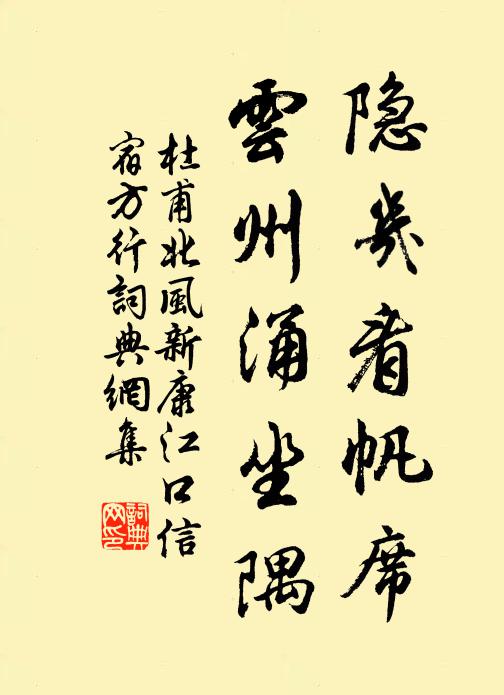 隐几看帆席
雲州涌坐隅
杜甫北風新康江口信
宿方行詞典網集
詞典
网印